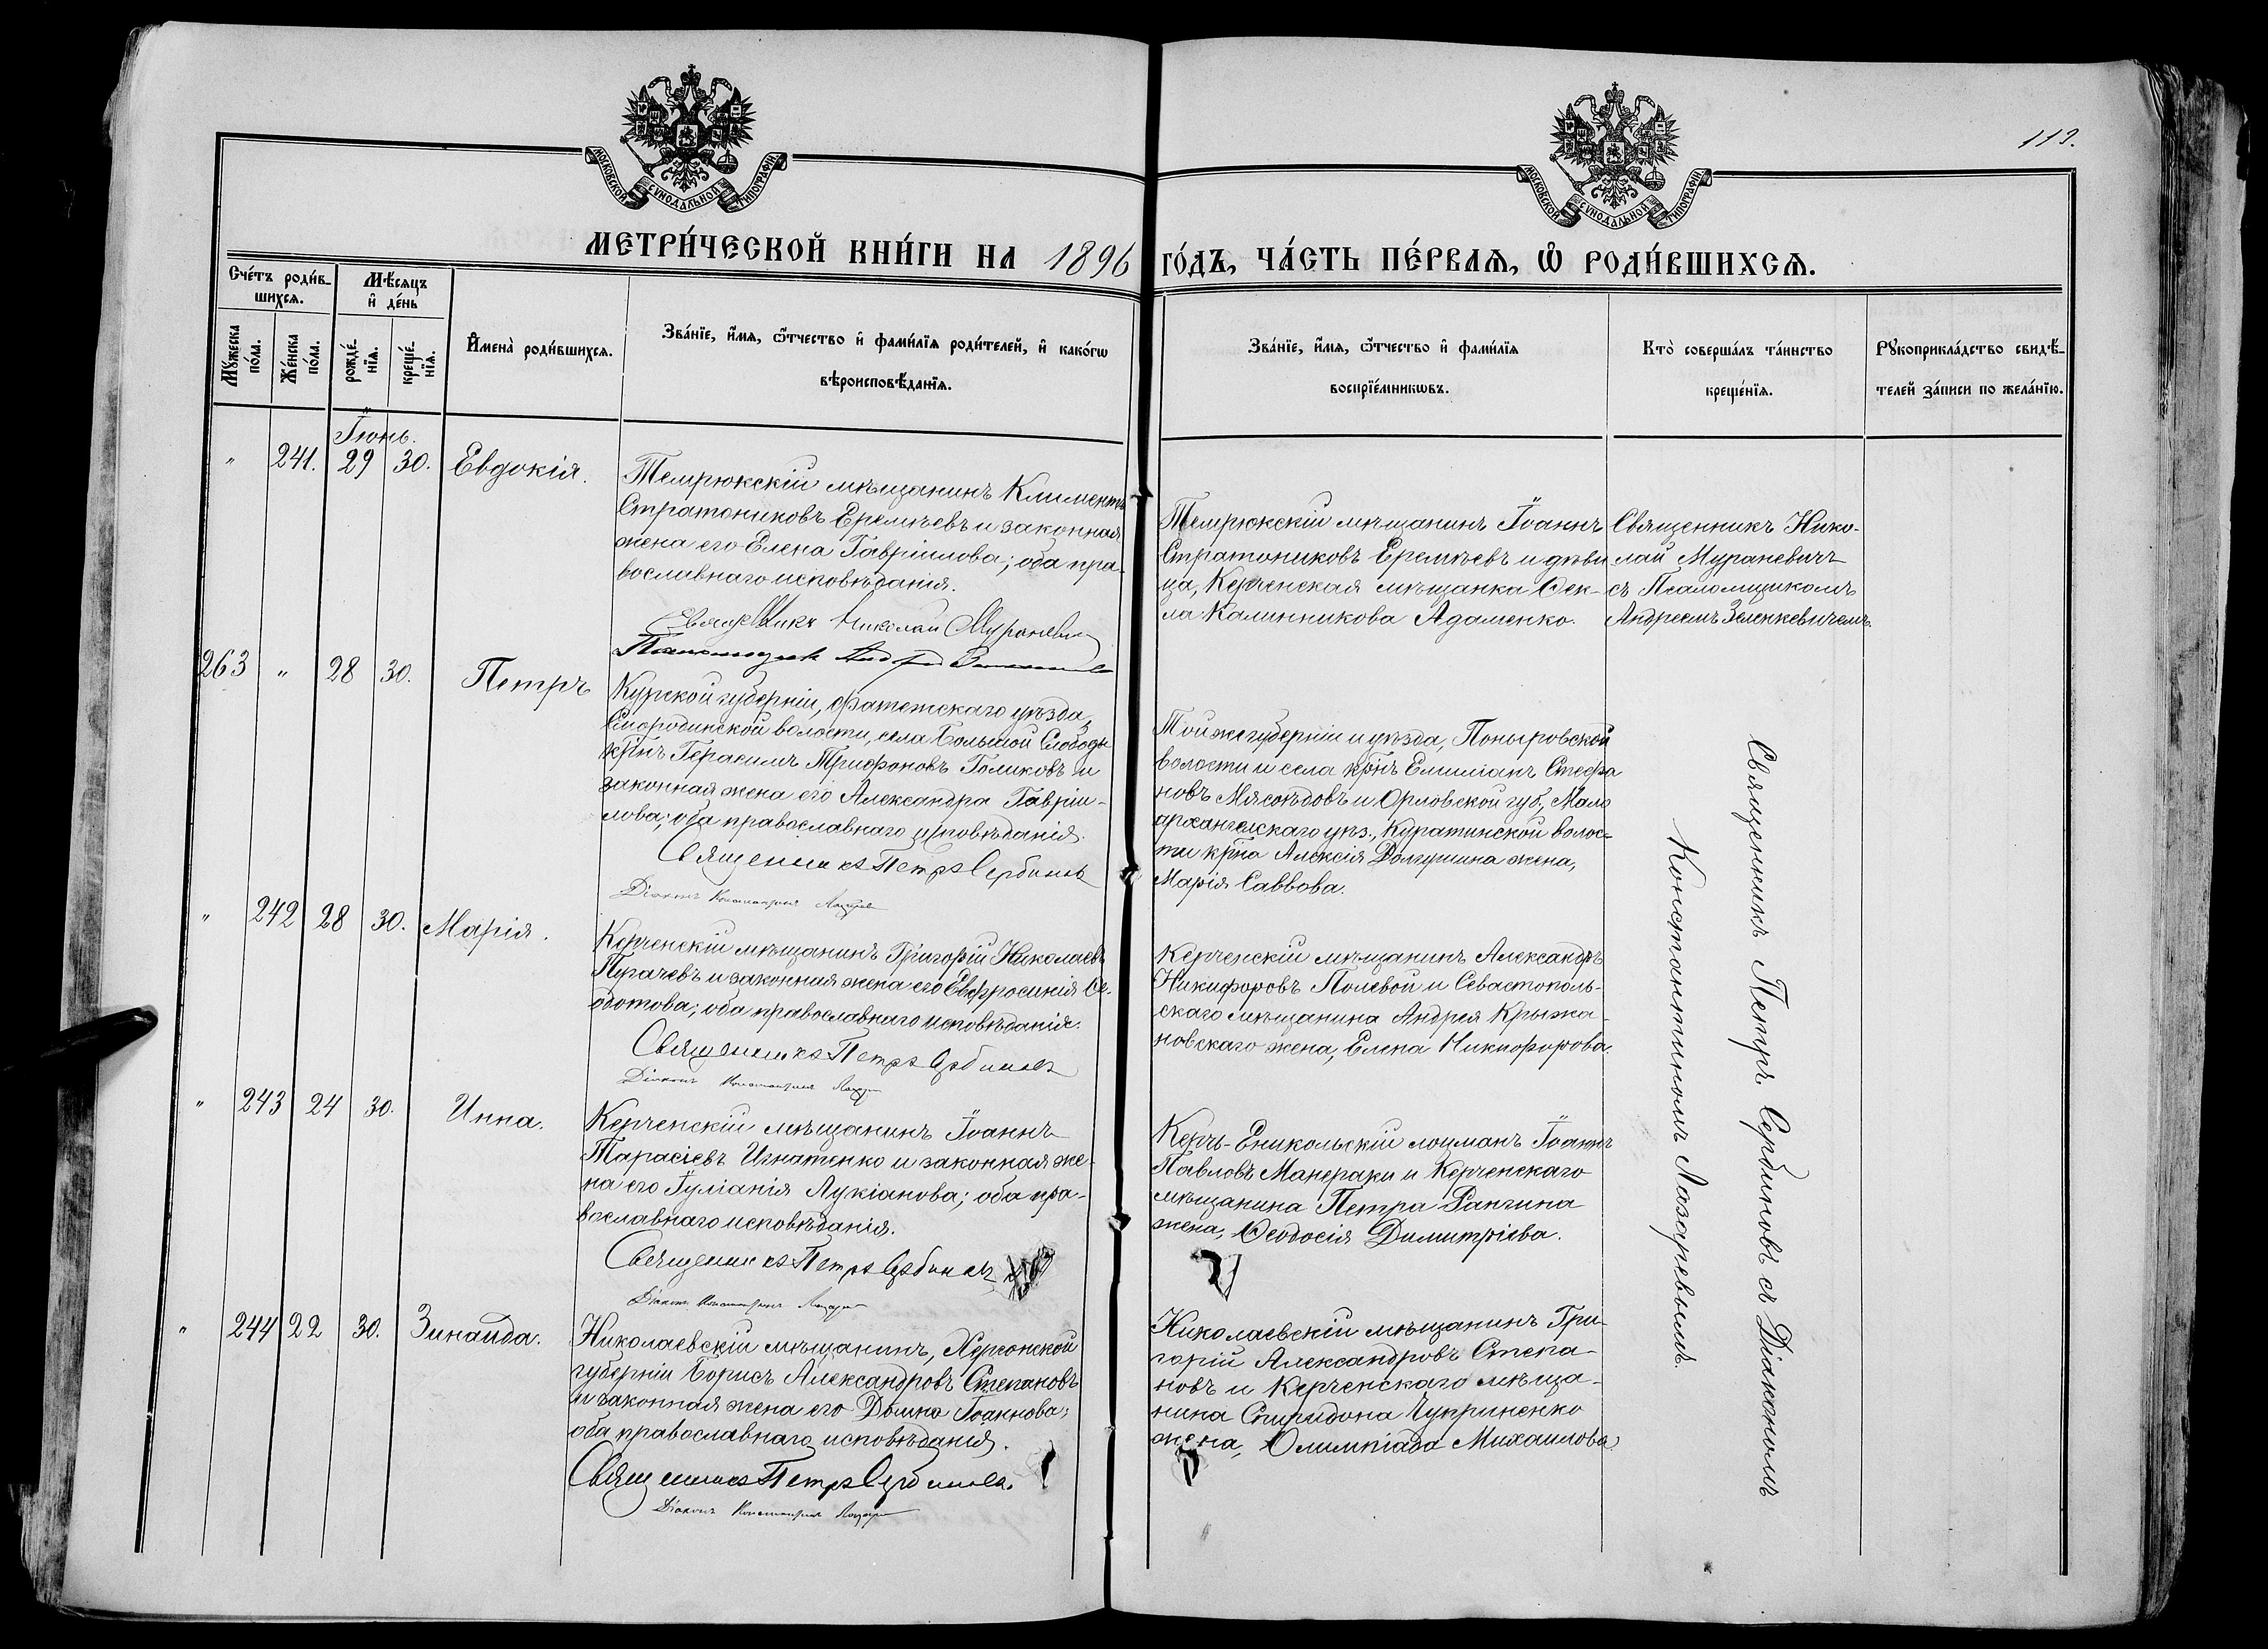 113.
МОСКОВСКОЙ СѴНОДАЛЬНОЙ ТИПОГРАФІИ
МОСКОВСКОЙ СѴНОДАЛЬНОЙ ТИПОГРАФІИ
МЕТРИ́ЧЕСКОЙ КНИ́ГИ НА 1896 ГО́ДЪ, ЧА́СТЬ ПЕ́РВАѦ, Ѡ РОДИ́ВШИХСѦ.
Сче́тъ роди́в-
шихсѧ.
Мѣсѧцъ
и де́нь
Мꙋ́жеска
по́ла.
Же́нска
по́ла.
рожде́-
нїѧ.
креще́-
нїѧ.
Имена̀ роди́вшихсѧ.
Зва́нїе, и́мѧ, ѻ́тчество и фами́лїѧ роди́телей, и како́гѡ
вѣроисповѣ́данїѧ.
Зва́нїе, и́мѧ, ѻ́тчество и фами́лїѧ
воспрїе́мникѡвъ.
Кто̀ соверша́лъ та́инство
креще́нїѧ.
Рꙋкоприкла́дство свидѣ́-
телей за́писи по жела́нїю.
Іюнь.
" 241. 29 30. Евдокія.
Темрюкскій мѣщанинъ Климентъ
Стратониковъ Еремѣевъ и законная
жена его Елена Гавріилова; оба пра-
вославнаго исповѣданія.
Священникъ Николай Мураневичъ
Псаломщикъ Андрей
Темрюкскій мѣщанинъ Іоаннъ
Стратониковъ Еремѣевъ и дѣви
ца, Керченская мѣщанка Ѳек-
ла Калинникова Адаменко.
Священникъ Нико-
лай Мураневичъ
съ Псаломщикомъ
Андреемъ Зеленкевичемъ.
263 " 28 30. Петръ
Курской губерніи, Фатежскаго уѣзда,
Смородинской волости, села Большой Слободы
крнъ Герасимъ Трифоновъ Голиковъ и
законная жена его Александра Гавріи-
лова; оба православнаго исповѣданія.
Священникъ Петръ Сербиновъ
Діаконъ Константинъ Лазаревъ
Той же губерніи и уѣзда, Поныровской
волости и села крнъ Емиліанъ Стефа
новъ Мясоѣдовъ и Орловской губ., Мало
архангельскаго уѣз., Куратинской волос-
ти крна Алексія Долгушина жена,
Марія Саввова.
Священникъ Петръ Сербиновъ съ Діакономъ
Константиномъ Лазаревымъ.
" 242 28 30. Марія.
Керченскій мѣщанинъ Григорій Николаевъ
Пугачевъ и законная жена его Евфросинія Ѳе-
одотова; оба православнаго исповѣданія.
Священникъ Петръ Сербиновъ
Діаконъ Константинъ Лазаревъ
Керченскій мѣщанинъ Александръ
Никифоровъ Полевой и Севастополь-
скаго мѣщанина Андрея Крыжа-
новскаго жена, Елена Никифорова.
" 243 24 30. Инна.
Керченскій мѣщанинъ Іоаннъ
Тарасіевъ Игнатенко и законная же-
на его Іуліанія Лукіанова; оба пра-
вославнаго исповѣданія.
Священникъ Петръ Сербиновъ
Діаконъ Константинъ Лазаревъ
Керчь-Еникольскій лоцманъ Іоаннъ
Павловъ Манераки и Керченскаго
мѣщанина Петра Рангина
жена, Ѳеодосія Димитріева.
" 244 22 30. Зинаида.
Николаевскій мѣщанинъ, Херсонской
губерніи Борисъ Александровъ Степановъ
и законная жена его Домна Іоаннова;
оба православнаго исповѣданія.
Священникъ Петръ Сербиновъ.
Діаконъ Константинъ Лазаревъ
Николаевскій мѣщанинъ Гри-
горій Александровъ Степа-
новъ и Керченскаго мѣща-
нина Спиридона Чуприненко
жена, Олимпіада Михаилова.